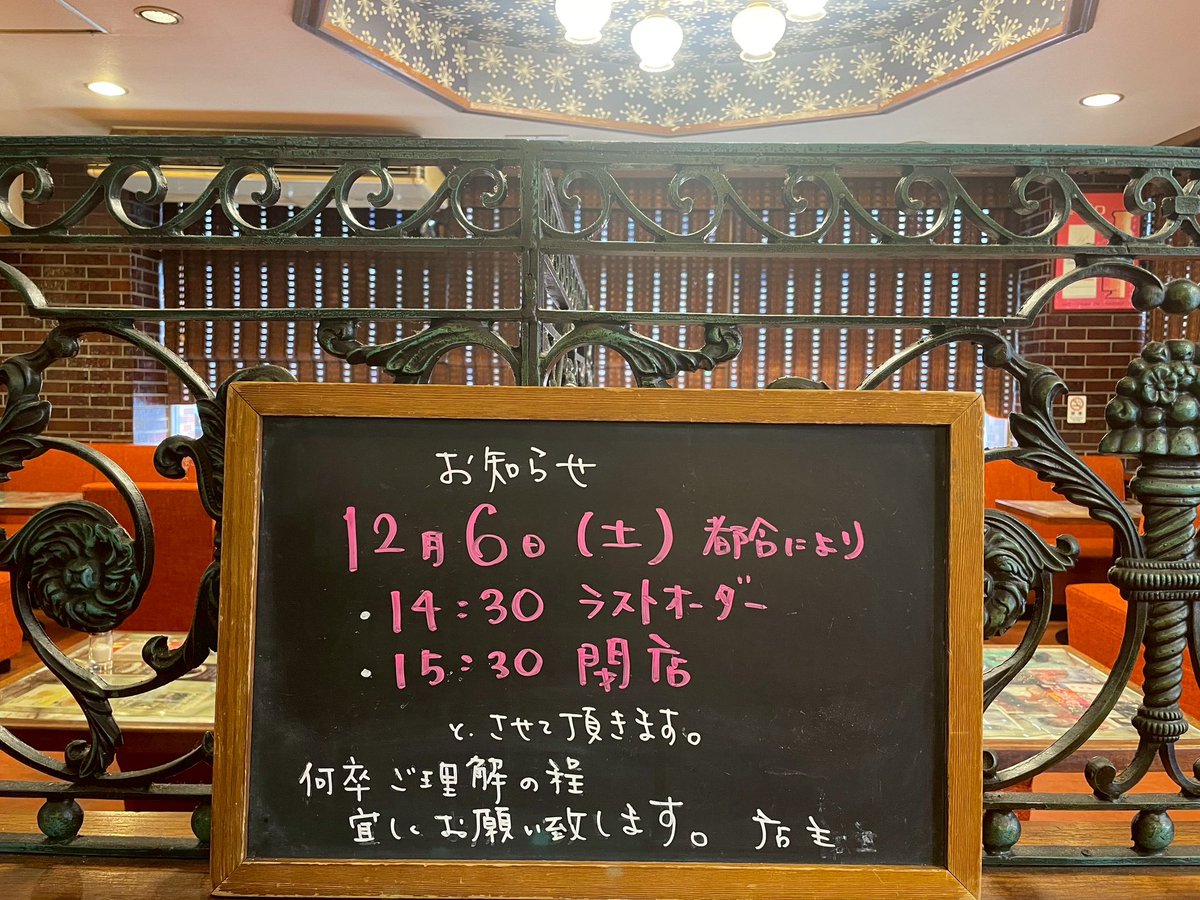 お知らせ
12月6日(土) 都合により
・14:30 ラストオーダー
・15:30 閉店
と、させて頂きます。
何卒ご理解の程
宜しくお願い致します。 店主